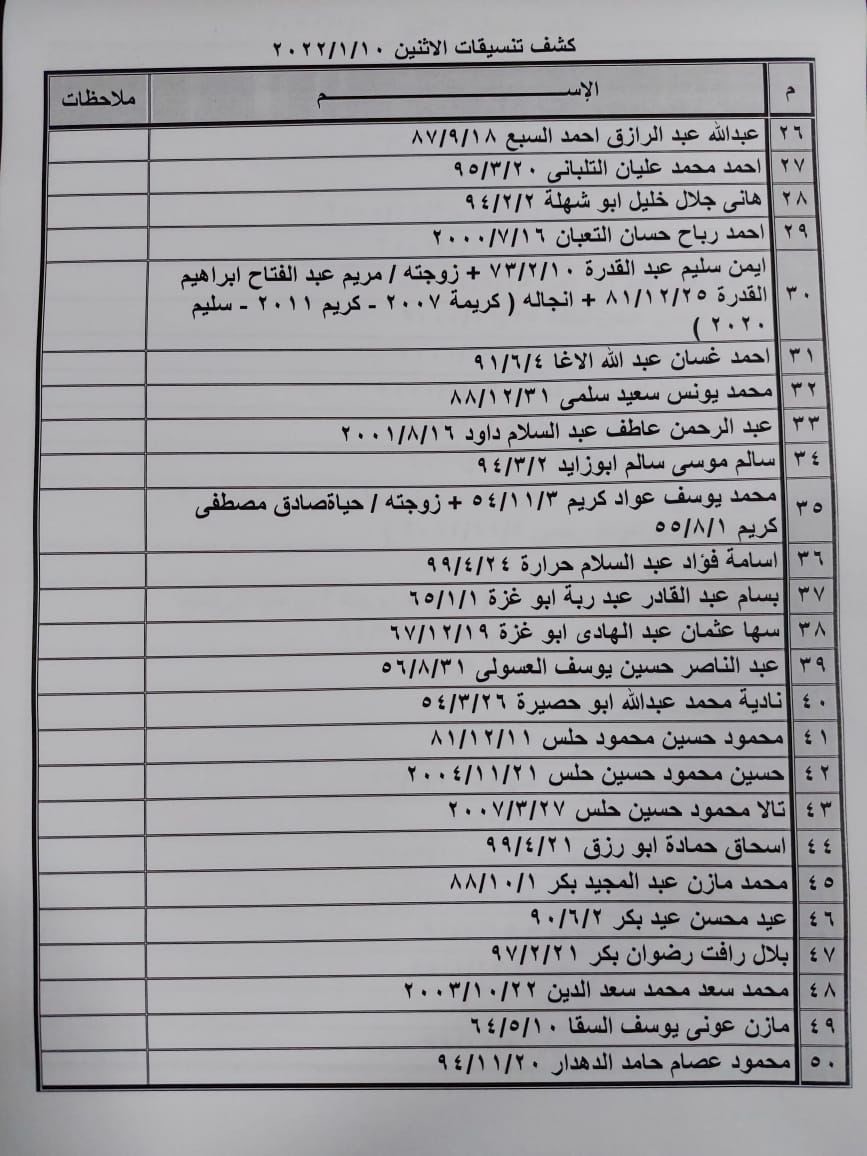 كشف تنسيقات الاثنين ٢٠٢٢/١/١٠
م الإســـــــم ملاحظات
٢٦ عبدالله عبد الرازق احمد السبع ٨٧/٩/١٨
٢٧ احمد محمد عليان التلبانى ٩٥/٣/٢٠
٢٨ هانى جلال خليل ابو شهلة ٩٤/٢/٢
٢٩ احمد رباح حسان التعبان ٢٠٠٠/٧/١٦
٣٠ ايمن سليم عبد القدرة ٧٣/٢/١٠ + زوجته / مريم عبد الفتاح ابراهيم
القدرة ٨١/١٢/٢٥ + انجاله ( كريمة ٢٠٠٧ - كريم ٢٠١١ - سليم
٢٠٢٠ )
٣١ احمد غسان عبد الله الاغا ٩١/٦/٤
٣٢ محمد يونس سعيد سلمى ٨٨/١٢/٣١
٣٣ عبد الرحمن عاطف عبد السلام داود ٢٠٠١/٨/١٦
٣٤ سالم موسى سالم ابوزايد ٩٤/٣/٢
٣٥ محمد يوسف عواد كريم ٥٤/١١/٣ + زوجته / حياةصادق مصطفى
كريم ٥٥/٨/١
٣٦ اسامة فؤاد عبد السلام حرارة ٩٩/٤/٢٤
٣٧ بسام عبد القادر عبد ربة ابو غزة ٦٥/١/١
٣٨ سها عثمان عبد الهادى ابو غزة ٦٧/١٢/١٩
٣٩ عبد الناصر حسين يوسف العسولى ٥٦/٨/٣١
٤٠ نادية محمد عبدالله ابو حصيرة ٥٤/٣/٢٦
٤١ محمود حسين محمود حلس ٨١/١٢/١١
٤٢ حسين محمود حسين حلس ٢٠٠٤/١١/٢١
٤٣ تالا محمود حسين حلس ٢٠٠٧/٣/٢٧
٤٤ اسحاق حمادة ابو رزق ٩٩/٤/٢١
٤٥ محمد مازن عبد المجيد بكر ٨٨/١٠/١
٤٦ عيد محسن عيد بكر ٩٠/٦/٢
٤٧ بلال رافت رضوان بكر ٩٧/٢/٢١
٤٨ محمد سعد محمد سعد الدين ٢٠٠٣/١٠/٢٢
٤٩ مازن عونى يوسف السقا ٦٤/٥/١٠
٥٠ محمود عصام حامد الدهدار ٩٤/١١/٢٠